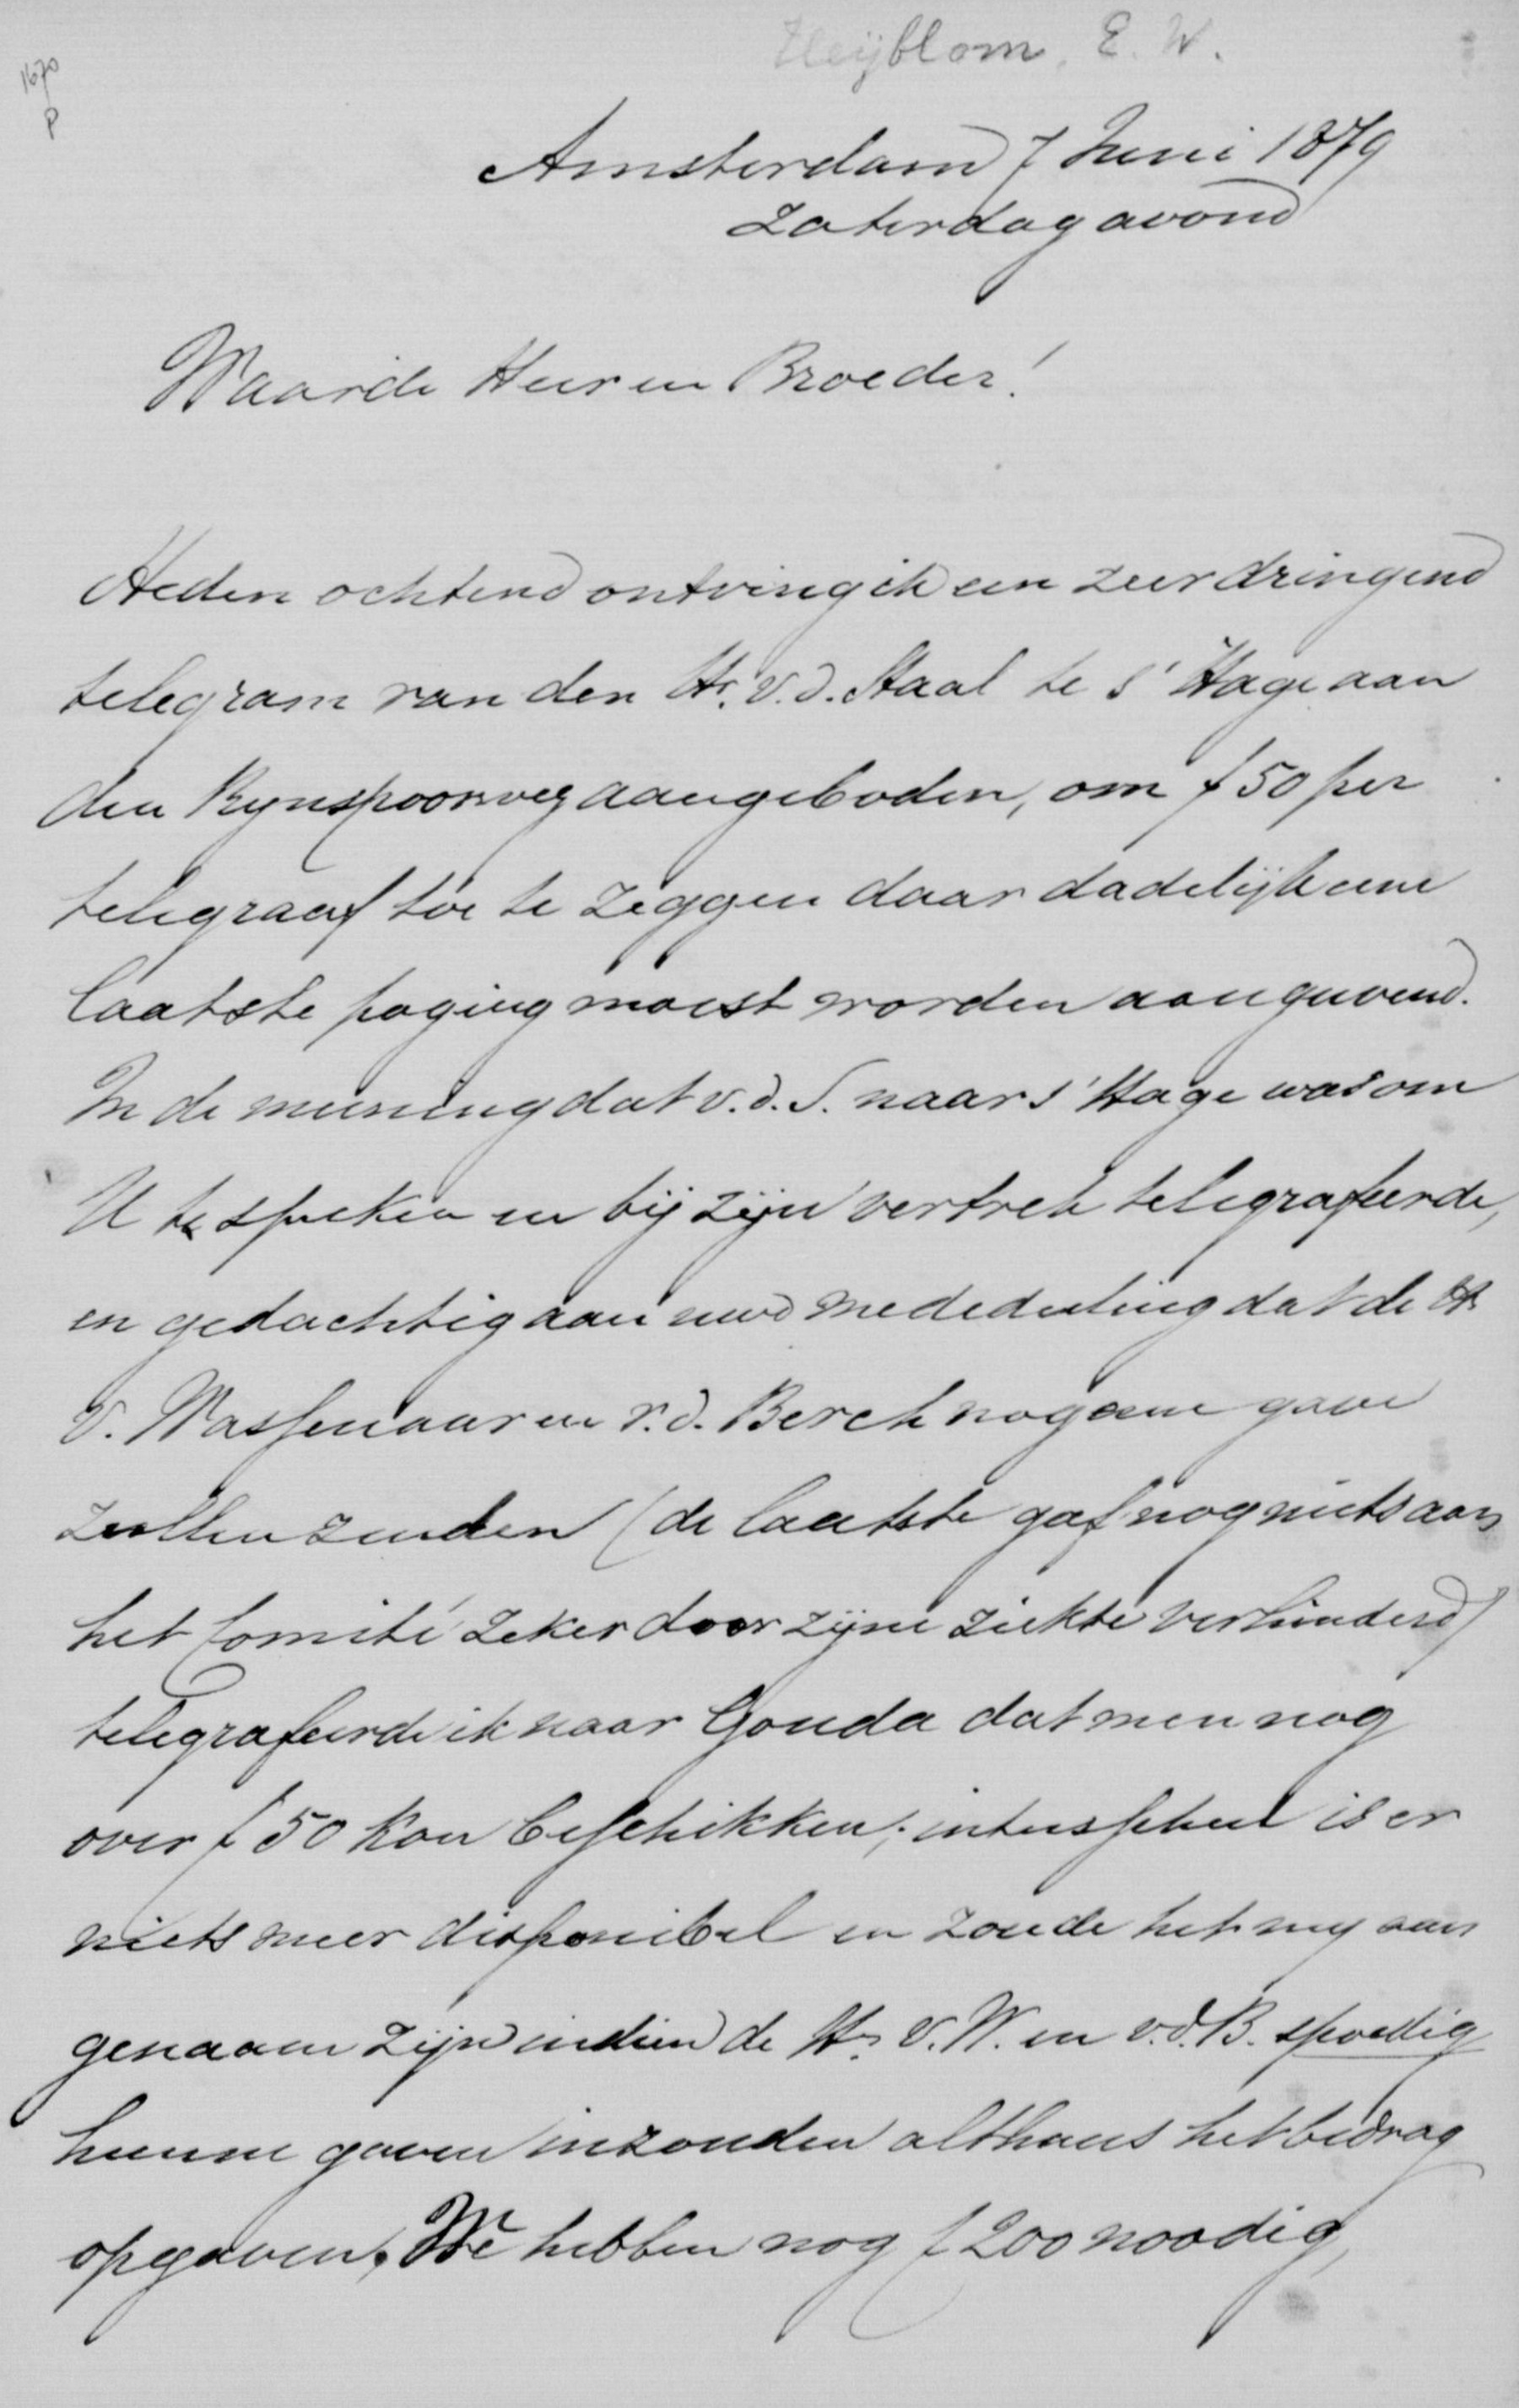 Heyblom, E. W.
1670
P
Amsterdam 7 Juni 1879
Zaterdag avond
Waarde Heer en Broeder!
Heden ochtend ontving ik een zeer dringend
telegram van den Hr. v.d. Staal te s' Hage aan
den Rynspoorweg aangeboden, om f 50 per
telegraaf toe te zeggen daar dadelijk eene
laatste poging moest worden aangewend.
In de meening dat v.d.S. naar s' Hage was om
U te spreken en bij zijn vertrek telegrafeerde,
en gedachtig aan uwe mededeeling dat de Hr
v. Wassenaar en v.d. Berch nog eene gave
zullen zenden (de laatste gaf nog niets aan
het Comité zeker door zijne ziekte verhinderd)
telegrafeerde ik naar Gouda dat men nog
over f 50 kon beschikken; intusschen is er
niets meer disponibel en zoude het my aan
genaam zijn indien de Hr. v.W. en v.d.B. spoedig
hunne gaven inzonden althans het bedrag
opgaven. We hebben nog f 200 noodig,